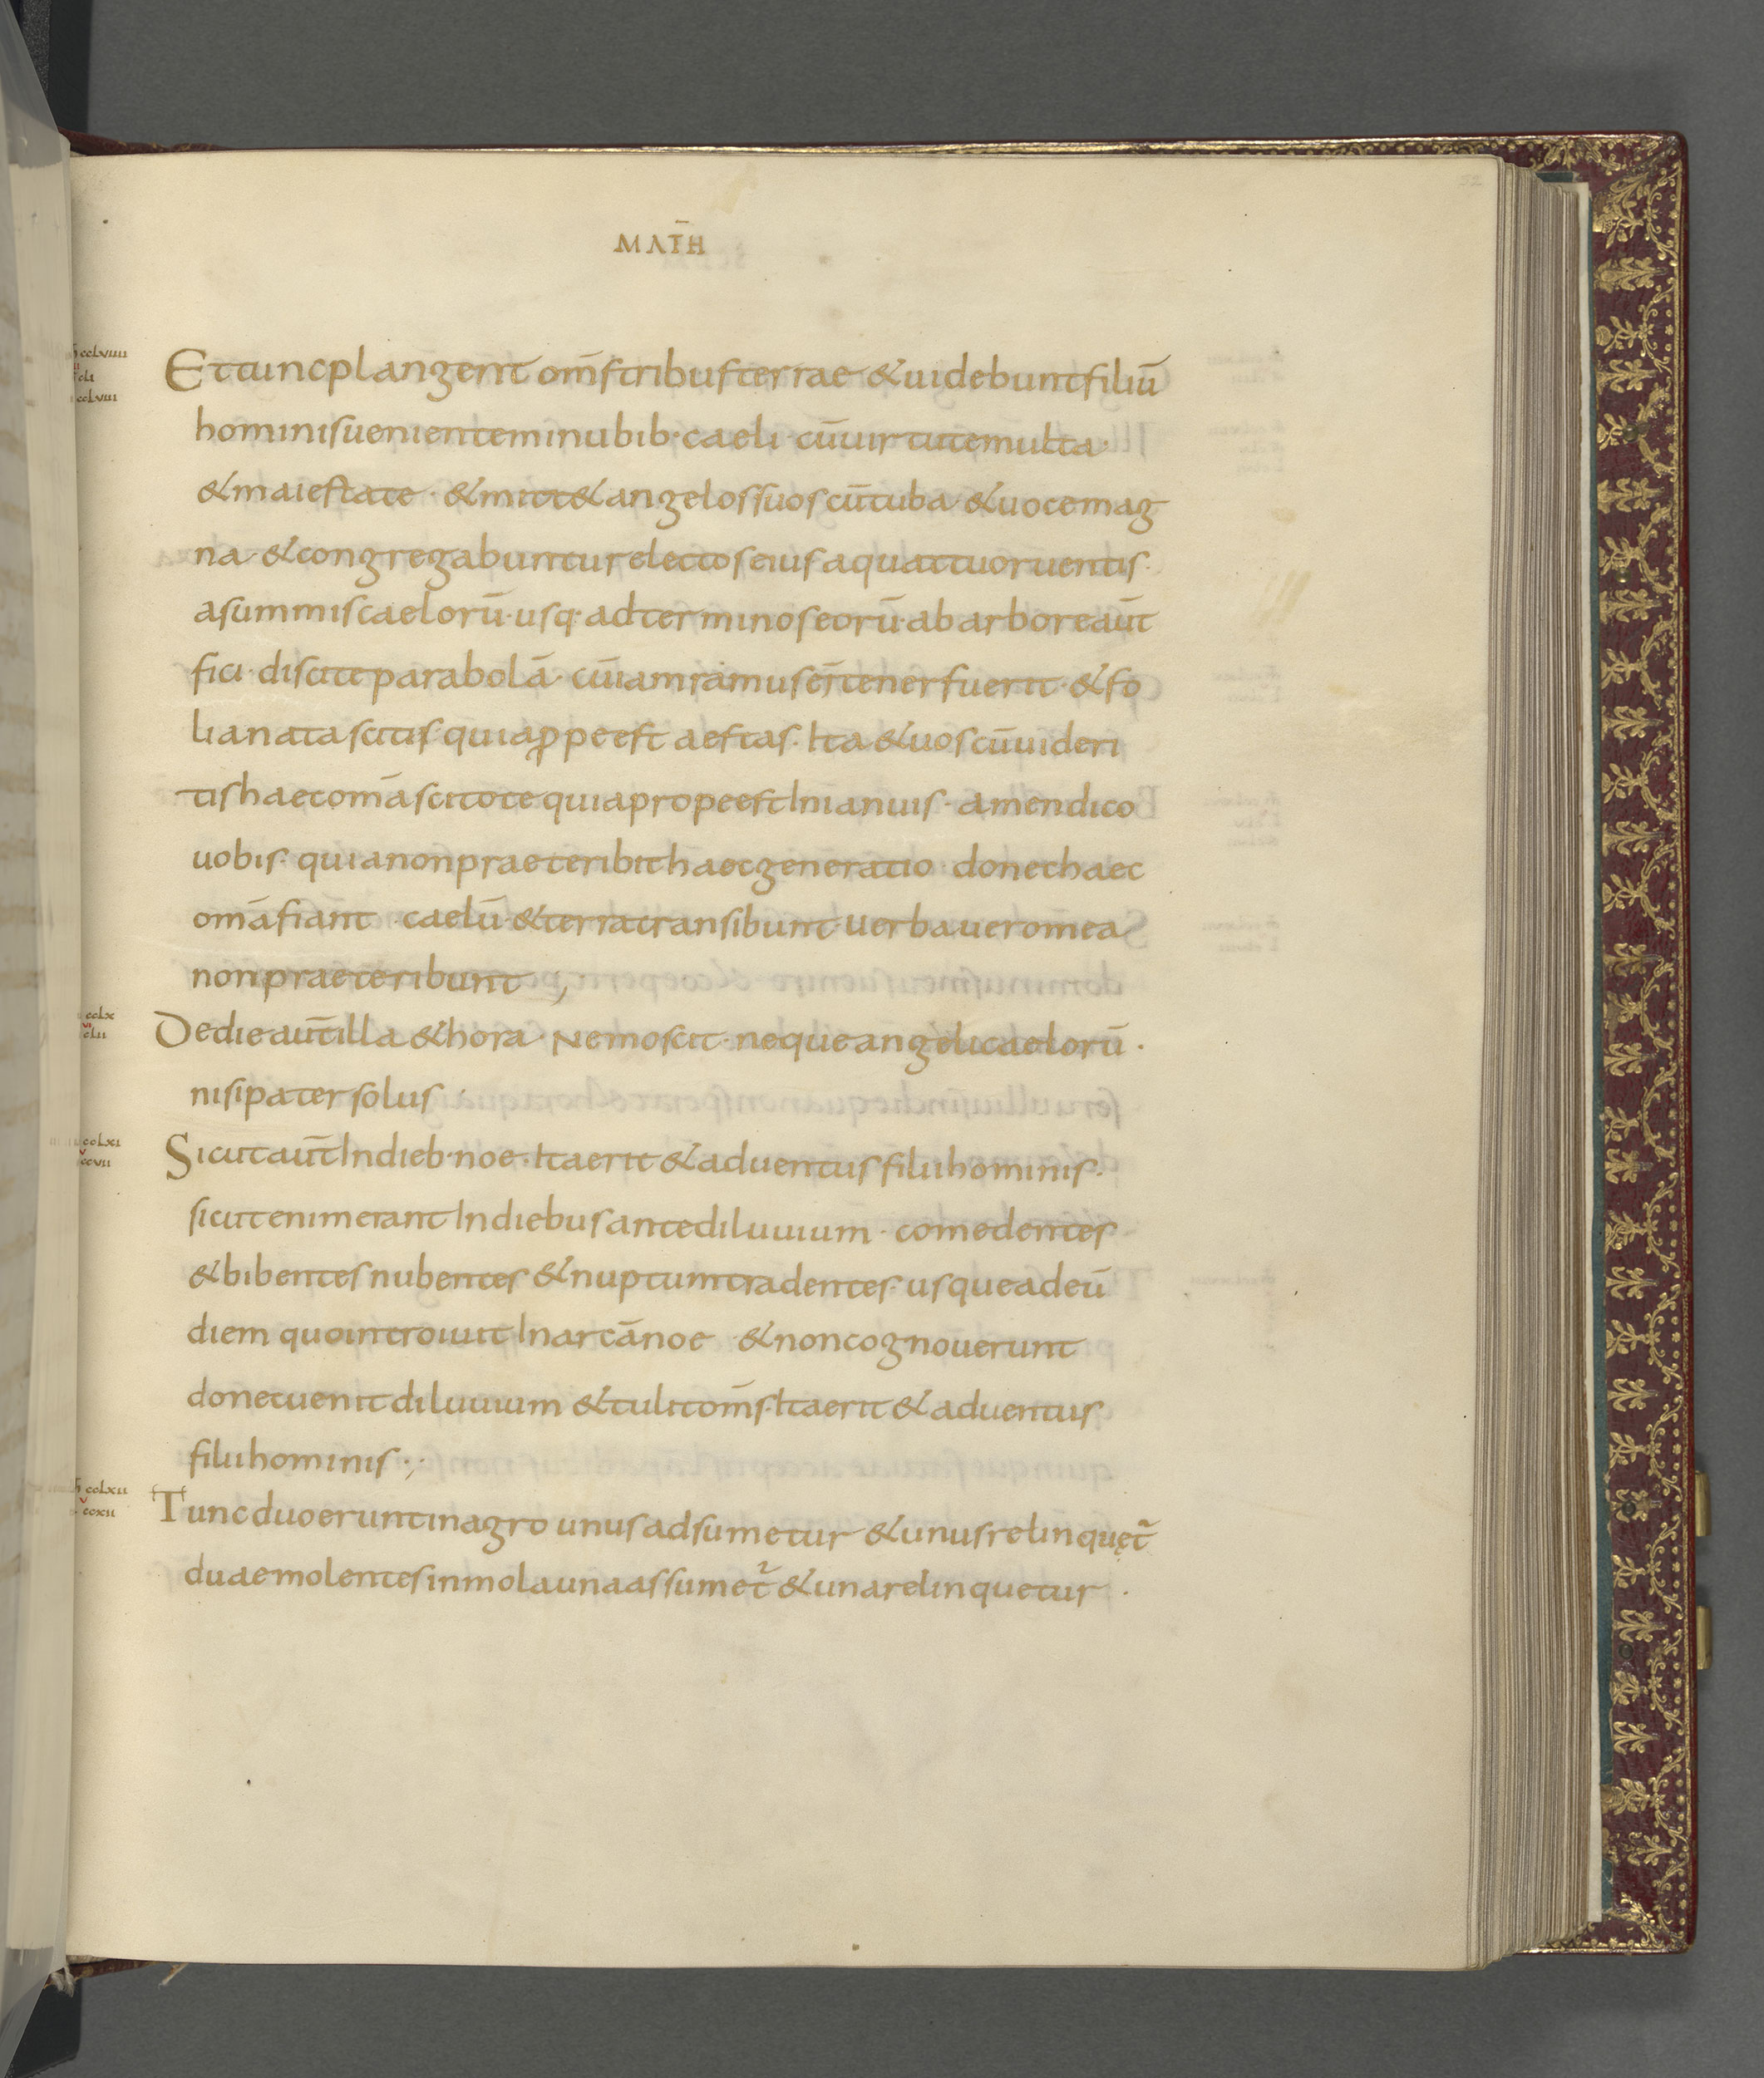 52
MAT̄H
cclviiii
cli
cclviii
Et tunc plangent om̄s tribus terrae & uidebunt filiū
hominis uenientem in nubib· caeli · cū uirtute multa·
& maiestate · & mittet angelos suos cū tuba & uoce mag
na & congregabuntur electos eius a quattuor uentis·
a summis caelorū· usq· ad terminos eorū· ab arbore aūt
fici · discite parabolā· cū iam ramus ei tener fuerit · & fo
lia nata scitis quia ꝓpe est aestas· Ita & uos cū uideri
tis haec omā scitote quia prope est In ianuis · amen dico
uobis · quia non praeteribit haec generatio · donec haec
omā fiant · caelū & terra transibunt · uerba uero mea
non praeteribunt ,
cclx
vi
clii
De die aūt illa & hora · Nemo scit · neque angeli caelorū ·
nisi pater solus
cclxi
v
ccvii
Sicut aūt In dieb· noe · Ita erit & aduentus filii hominis ·
sicut enim erant In diebus ante diluuium · comedentes
& bibentes nubentes & nuptum tradentes · usque ad eū
diem quo introiuit In arcā noe & non cognouerunt
donec uenit diluuium & tulit om̄s· Ita erit & aduentus
filii hominis ·,·
cclxii
v
ccxii
Tunc duo erunt in agro unus adsumetur & unus relinquet̄
duae molentes in mola una assumet̄ & una relinquetur ·